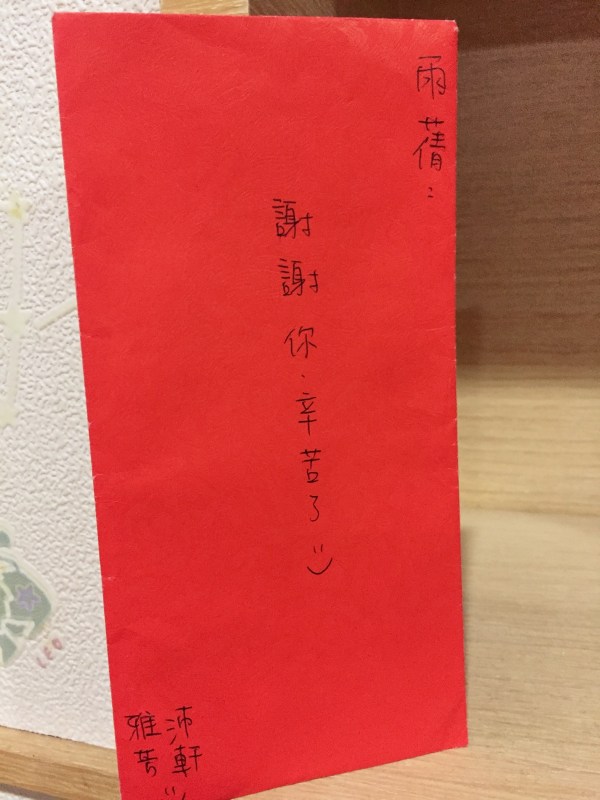 雨蒨：
謝謝你．辛苦了 :)
沛軒
雅芳 :)
LEO